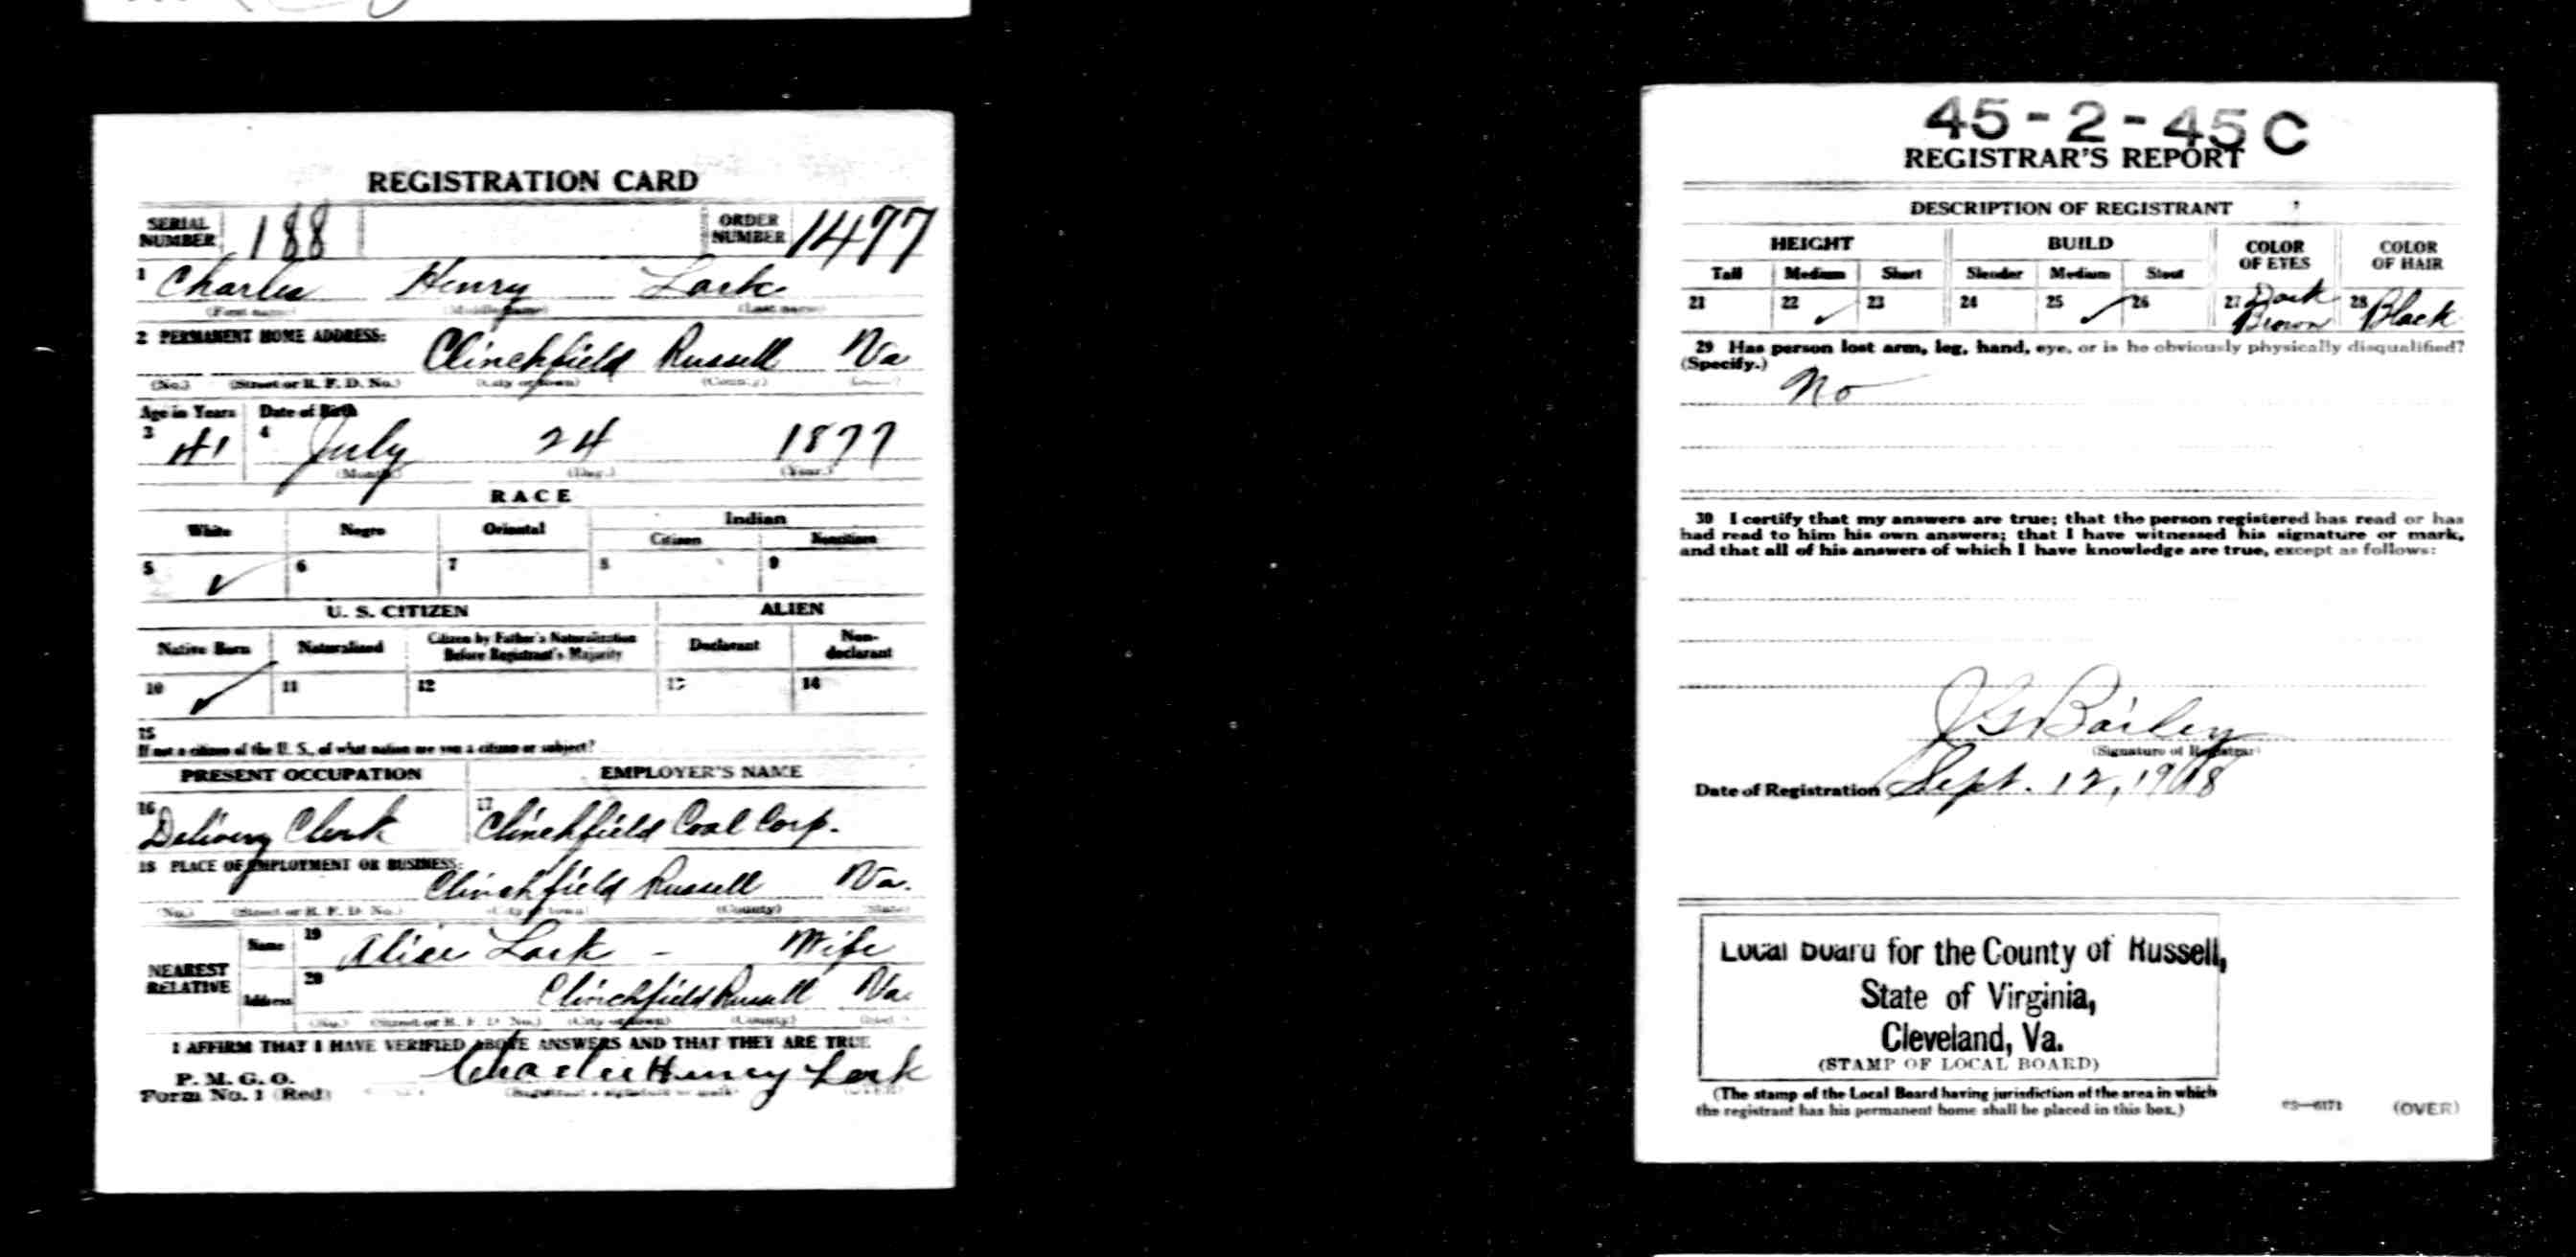 REGISTRATION CARD
SERIAL NUMBER 188 ORDER NUMBER 1477
1 Charles Henry Lark
(First name) (Middle name) (Last name)
2 PERMANENT HOME ADDRESS:
Clinchfield Russell Va
(No.) (Street or R. F. D. No.) (City or town) (County) (State)
Age in Years Date of Birth
3 41 4 July 24 1877
(Month) (Day) (Year)
RACE
White Negro Oriental Indian
Citizen Noncitizen
5 ✓ 6 7 8 9
U. S. CITIZEN ALIEN
Native Born Naturalized Citizen by Father's Naturalization Before Registrant's Majority Declarant Non-declarant
10 ✓ 11 12 13 14
15
If not a citizen of the U. S., of what nation are you a citizen or subject?
PRESENT OCCUPATION EMPLOYER'S NAME
16 Delivery Clerk 17 Clinchfield Coal Corp.
18 PLACE OF EMPLOYMENT OR BUSINESS:
Clinchfield Russell Va.
(No.) (Street or R. F. D. No.) (City or town) (County) (State)
NEAREST RELATIVE
Name 19 Alice Lark - Wife
Address 20 Clinchfield Russell Va.
(No.) (Street or R. F. D. No.) (City or town) (County) (State)
I AFFIRM THAT I HAVE VERIFIED ABOVE ANSWERS AND THAT THEY ARE TRUE
P. M. G. O.
Form No. 1 (Red) Charlie Henry Lark
(Registrant's signature or mark) (OVER)
45-2-45 C
REGISTRAR'S REPORT
DESCRIPTION OF REGISTRANT
HEIGHT BUILD COLOR OF EYES COLOR OF HAIR
Tall Medium Short Slender Medium Stout
21 22 ✓ 23 24 25 ✓ 26 27 Dark Brown 28 Black
29 Has person lost arm, leg, hand, eye, or is he obviously physically disqualified?
(Specify.)
No
30 I certify that my answers are true; that the person registered has read or has
had read to him his own answers; that I have witnessed his signature or mark,
and that all of his answers of which I have knowledge are true, except as follows:
J G Bailey
(Signature of Registrar)
Date of Registration Sept. 12, 1918
Local Board for the County of Russell,
State of Virginia,
Cleveland, Va.
(STAMP OF LOCAL BOARD)
(The stamp of the Local Board having jurisdiction of the area in which
the registrant has his permanent home shall be placed in this box.)
(OVER)